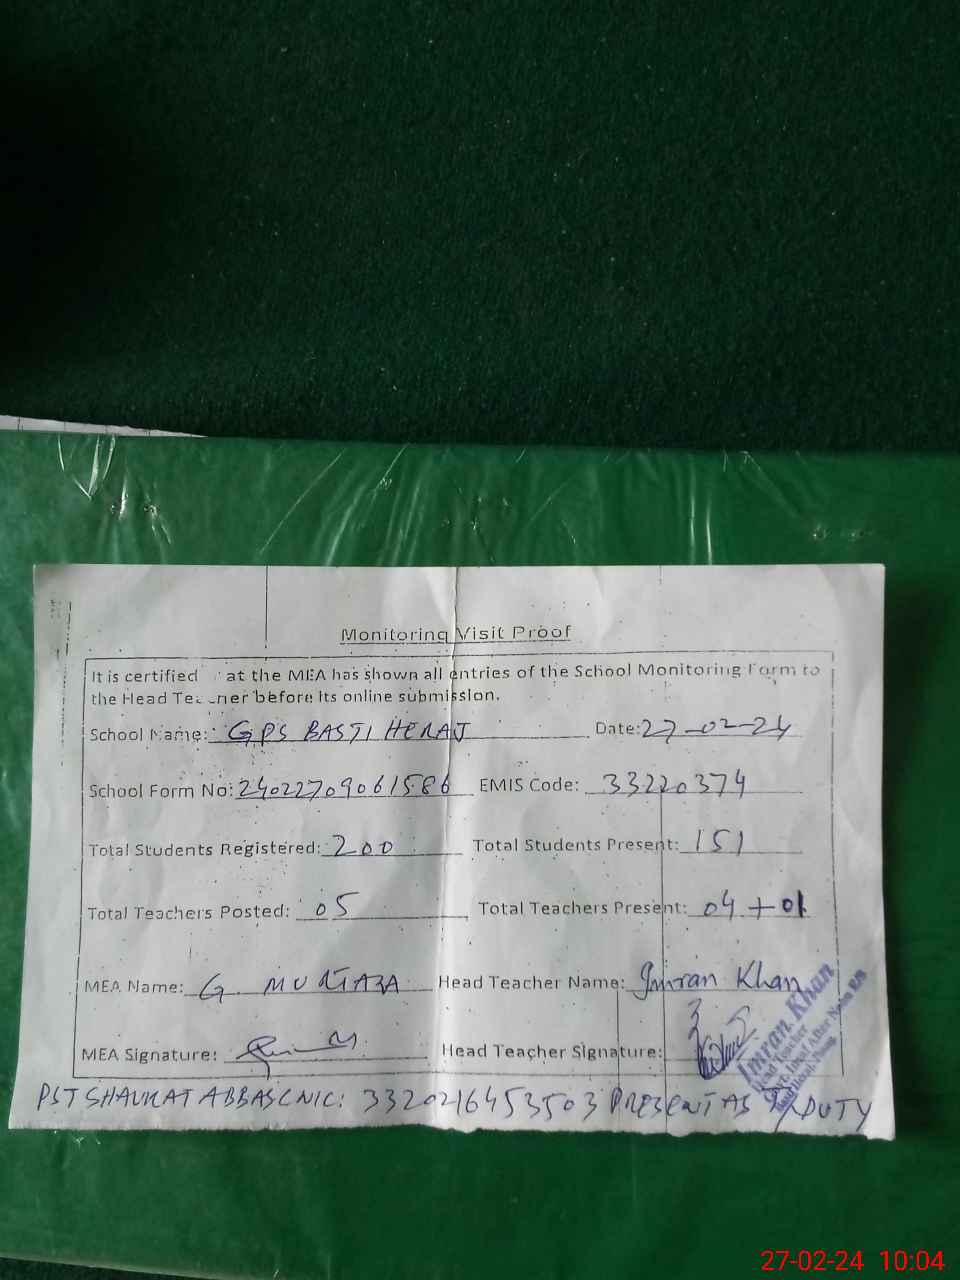 Monitoring Visit Proof
It is certified at the MEA has shown all entries of the School Monitoring Form to
the Head Teacher before its online submission.
School Name: GPS BASTI HERAJ Date: 27-02-24
School Form No: 24022709061586 EMIS Code: 33220374
Total Students Registered: 200 Total Students Present: 151
Total Teachers Posted: 05 Total Teachers Present: 04+01
MEA Name: G. MURTAZA Head Teacher Name: Imran Khan
MEA Signature: Head Teacher Signature:
Imran Khan
Head Teacher
PST SHAUKAT ABBAS CNIC: 3320216453503 PRESENT AS T/DUTY
27-02-24 10:04